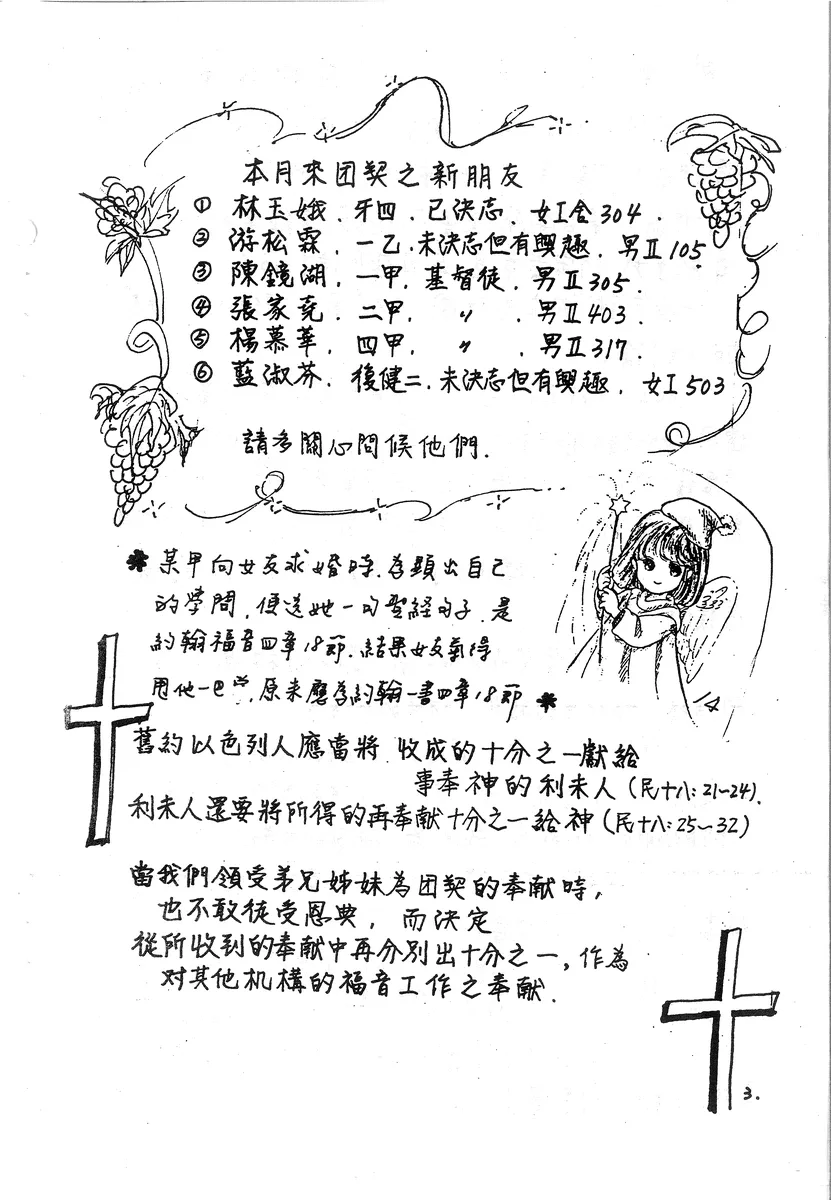 本月來团契之新朋友
① 林玉娥. 牙四. 已決志. 女I舍304.
② 游松霖. 一乙. 未決志但有興趣. 男II105.
③ 陳鏡湖. 一甲. 基督徒. 男II305.
④ 張家堯. 二甲. 〃. 男II403.
⑤ 楊慕華. 四甲. 〃. 男II317.
⑥ 藍淑芬. 復健二. 未決志但有興趣. 女I503
請多關心問候他們.
* 某甲向女友求婚時. 為顯出自己
的學問, 便送她一句聖経句子. 是
約翰福音四章18節. 結果女友氣得
甩他一巴, 原來應為約翰一書四章18節 *
舊約以色列人應當將 收成的十分之一獻給
事奉神的利未人 (民十八:21~24).
利未人還要將所得的再奉献十分之一給神 (民十八:25~32)
當我們領受弟兄姊妹為团契的奉献時,
也不敢徒受恩典, 而決定
從所收到的奉献中再分別出十分之一, 作為
对其他机構的福音工作之奉献.
3.